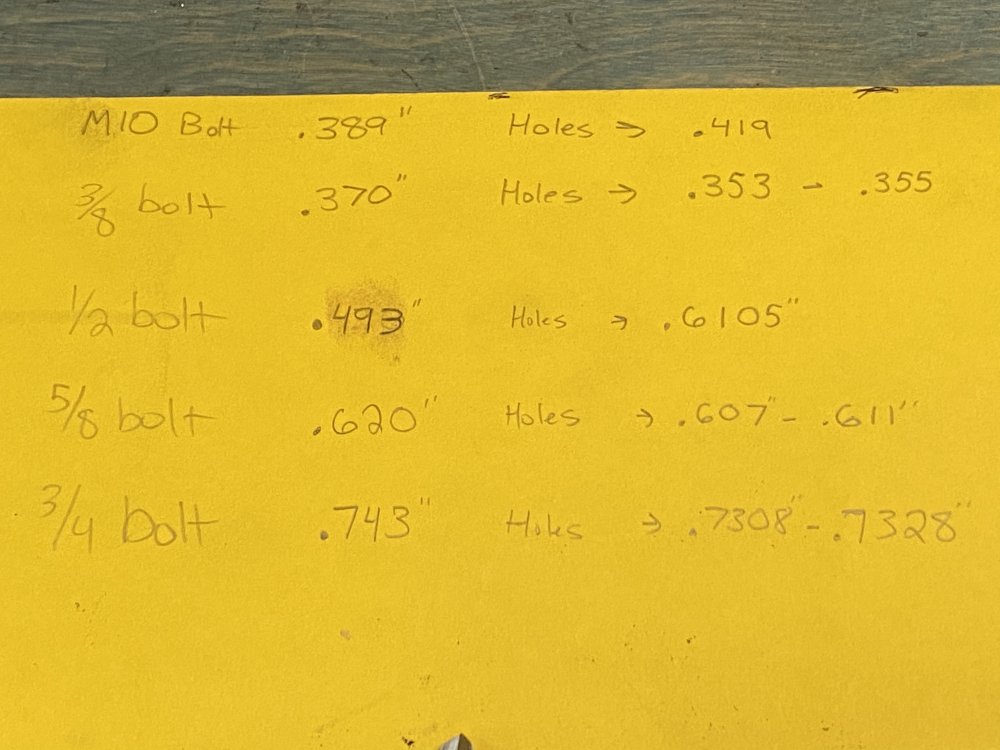 M10 Bolt .389" Holes → .419
3/8 bolt .370" Holes → .353 - .355
1/2 bolt .493" Holes → .6105"
5/8 bolt .620" Holes → .607" - .611"
3/4 bolt .743" Holes → .7308" - .7328"